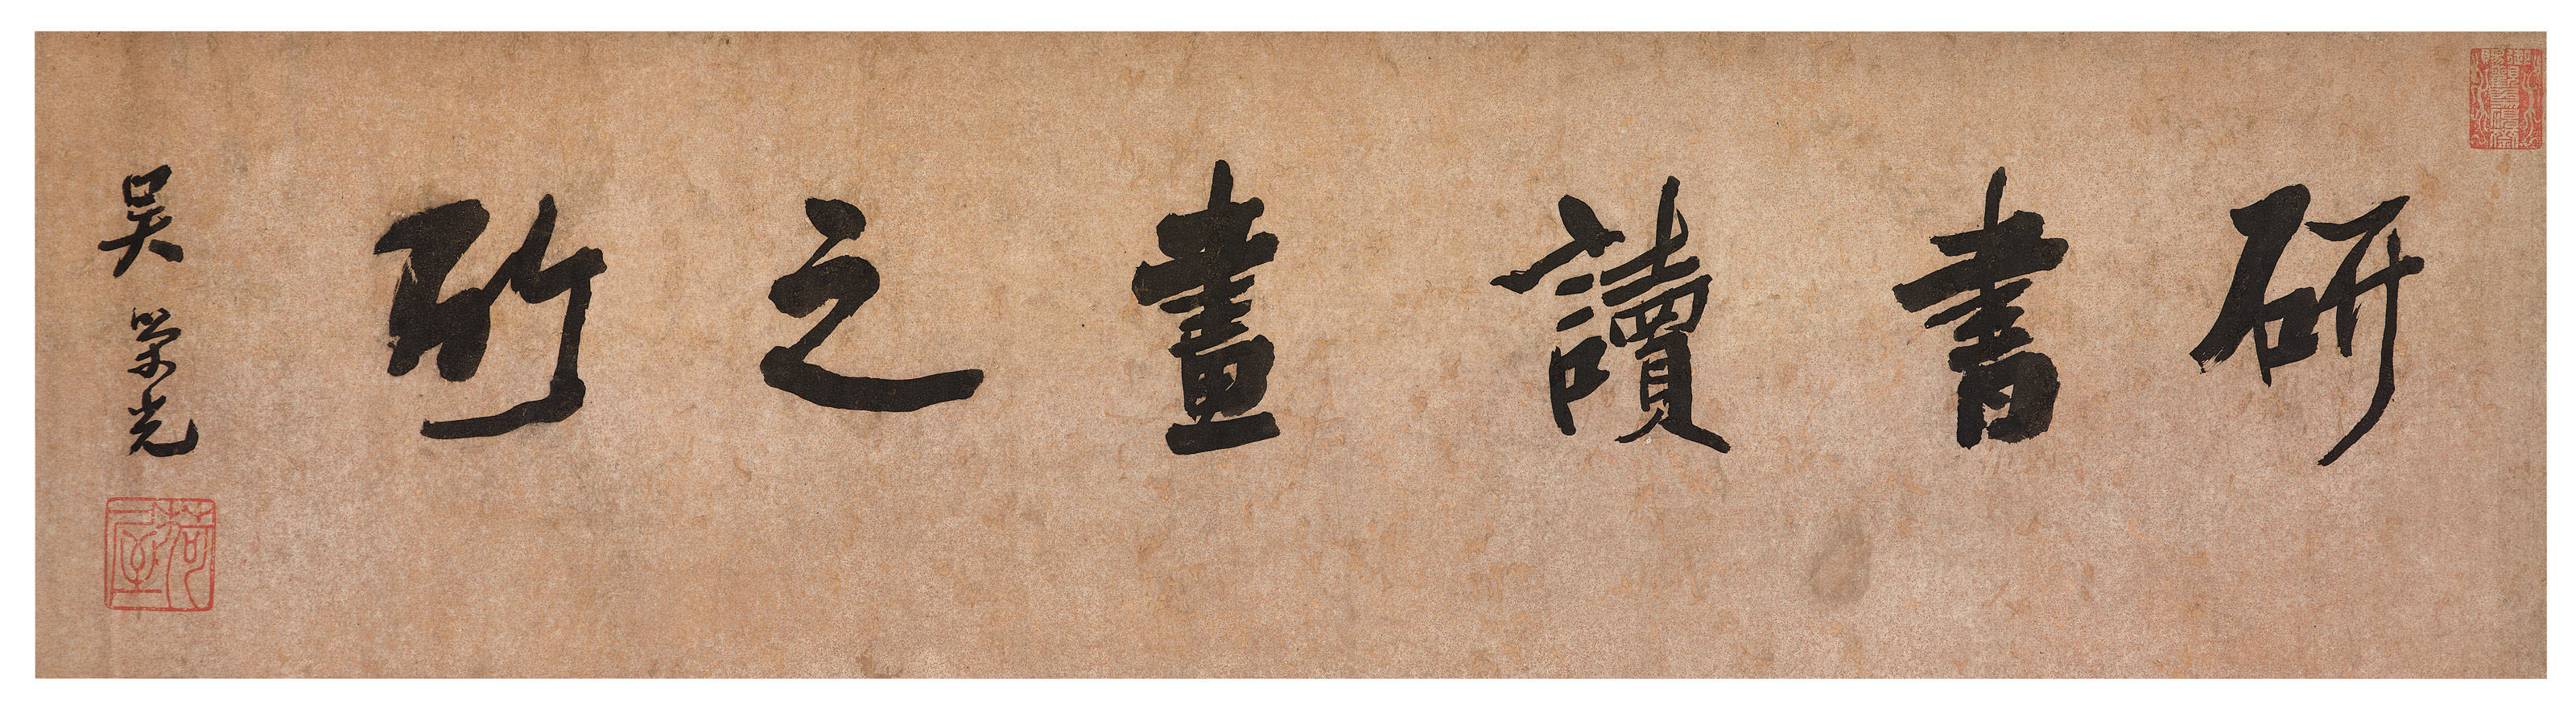 研書讀畫之所
吳榮光
荷屋